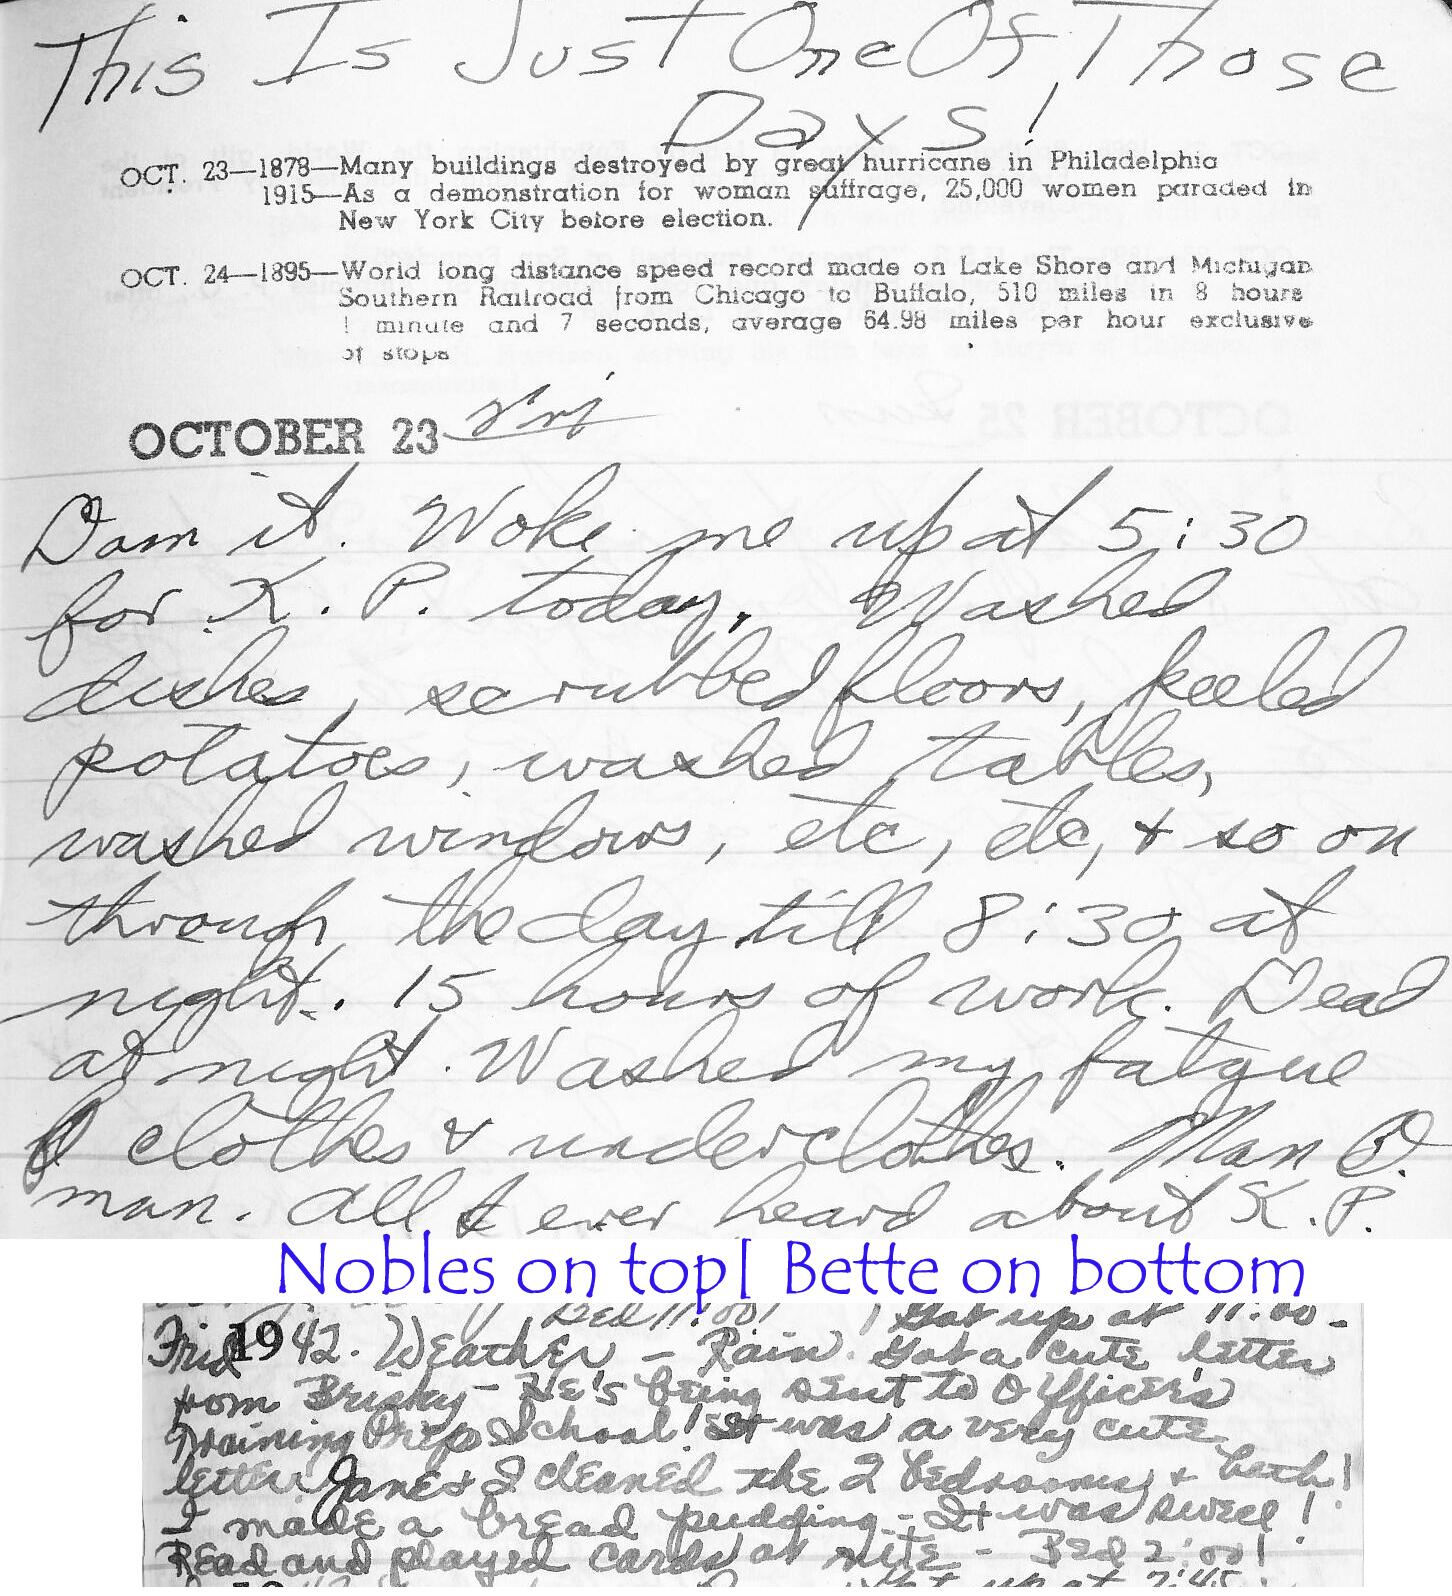 This Is Just One Of Those
Days!
OCT. 23—1878—Many buildings destroyed by great hurricane in Philadelphia
1915—As a demonstration for woman suffrage, 25,000 women paraded in
New York City before election.
OCT. 24—1895—World long distance speed record made on Lake Shore and Michigan
Southern Railroad from Chicago to Buffalo, 510 miles in 8 hours
1 minute and 7 seconds, average 64.98 miles per hour exclusive
of stops
OCTOBER 23 Fri
Dam it. Woke me up at 5:30
for K. P. today. Washed
dishes, scrubbed floors, peeled
potatoes, washed tables,
washed windows, etc, etc, & so on
through the day till 8:30 at
night. 15 hours of work. Dead
at night. Washed my fatgue
clothes & underclothes. Man O.
man. All I ever heard about K. P.
Nobles on top| Bette on bottom
Bed 11:00! Got up at 11:00-
Frid 1942. Weather - Rain. Got a cute letter
from Brisky - He's being sent to Officer's
Training Prep School! It was a very cute
letter. Jane & I cleaned the 2 bedrooms & bath!
I made a bread pudding - It was swell!
Read and played cards at nite - Bed 2:00!
Got up at 7:45.